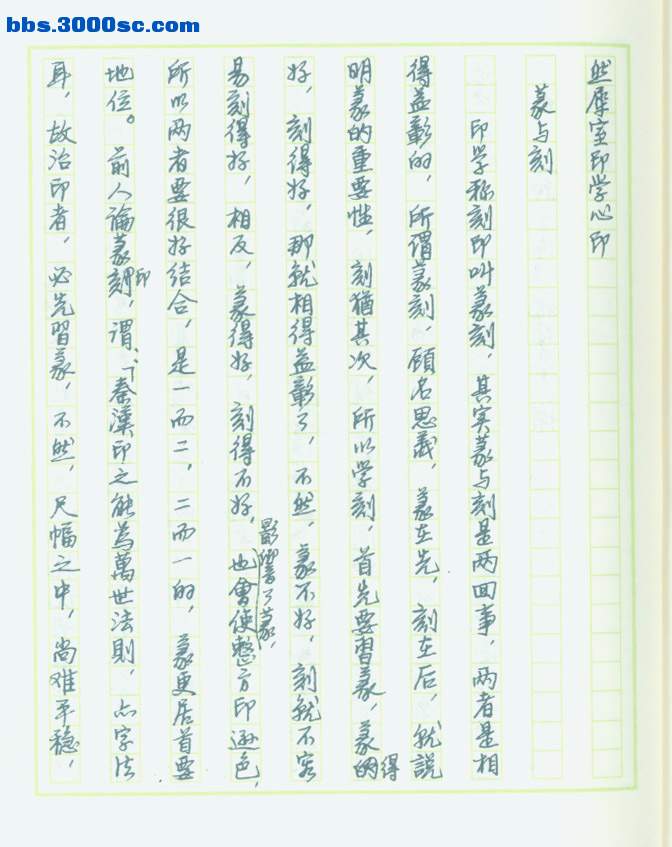 bbs.3000sc.com
然犀室印学心印
篆与刻
印学称刻印叫篆刻，其实篆与刻是两回事，两者是相
得益彰的，所谓篆刻，顾名思義，篆在先，刻在后，就説
明篆的重要性，刻猶其次，所以学刻，首先要習篆，篆得
好，刻得好，那就相得益彰了，不然，篆不好，刻就不容
易刻得好，相反，篆得好，刻得不好，影響了篆，也會使整方印遜色，
所以两者要很好结合，是一而二，二而一的，篆更居首要
地位。前人論篆印，謂：「秦漢印之能為萬世法則，亦字法
耳，故治印者，必先習篆，不然，尺幅之中，尚难平穏，